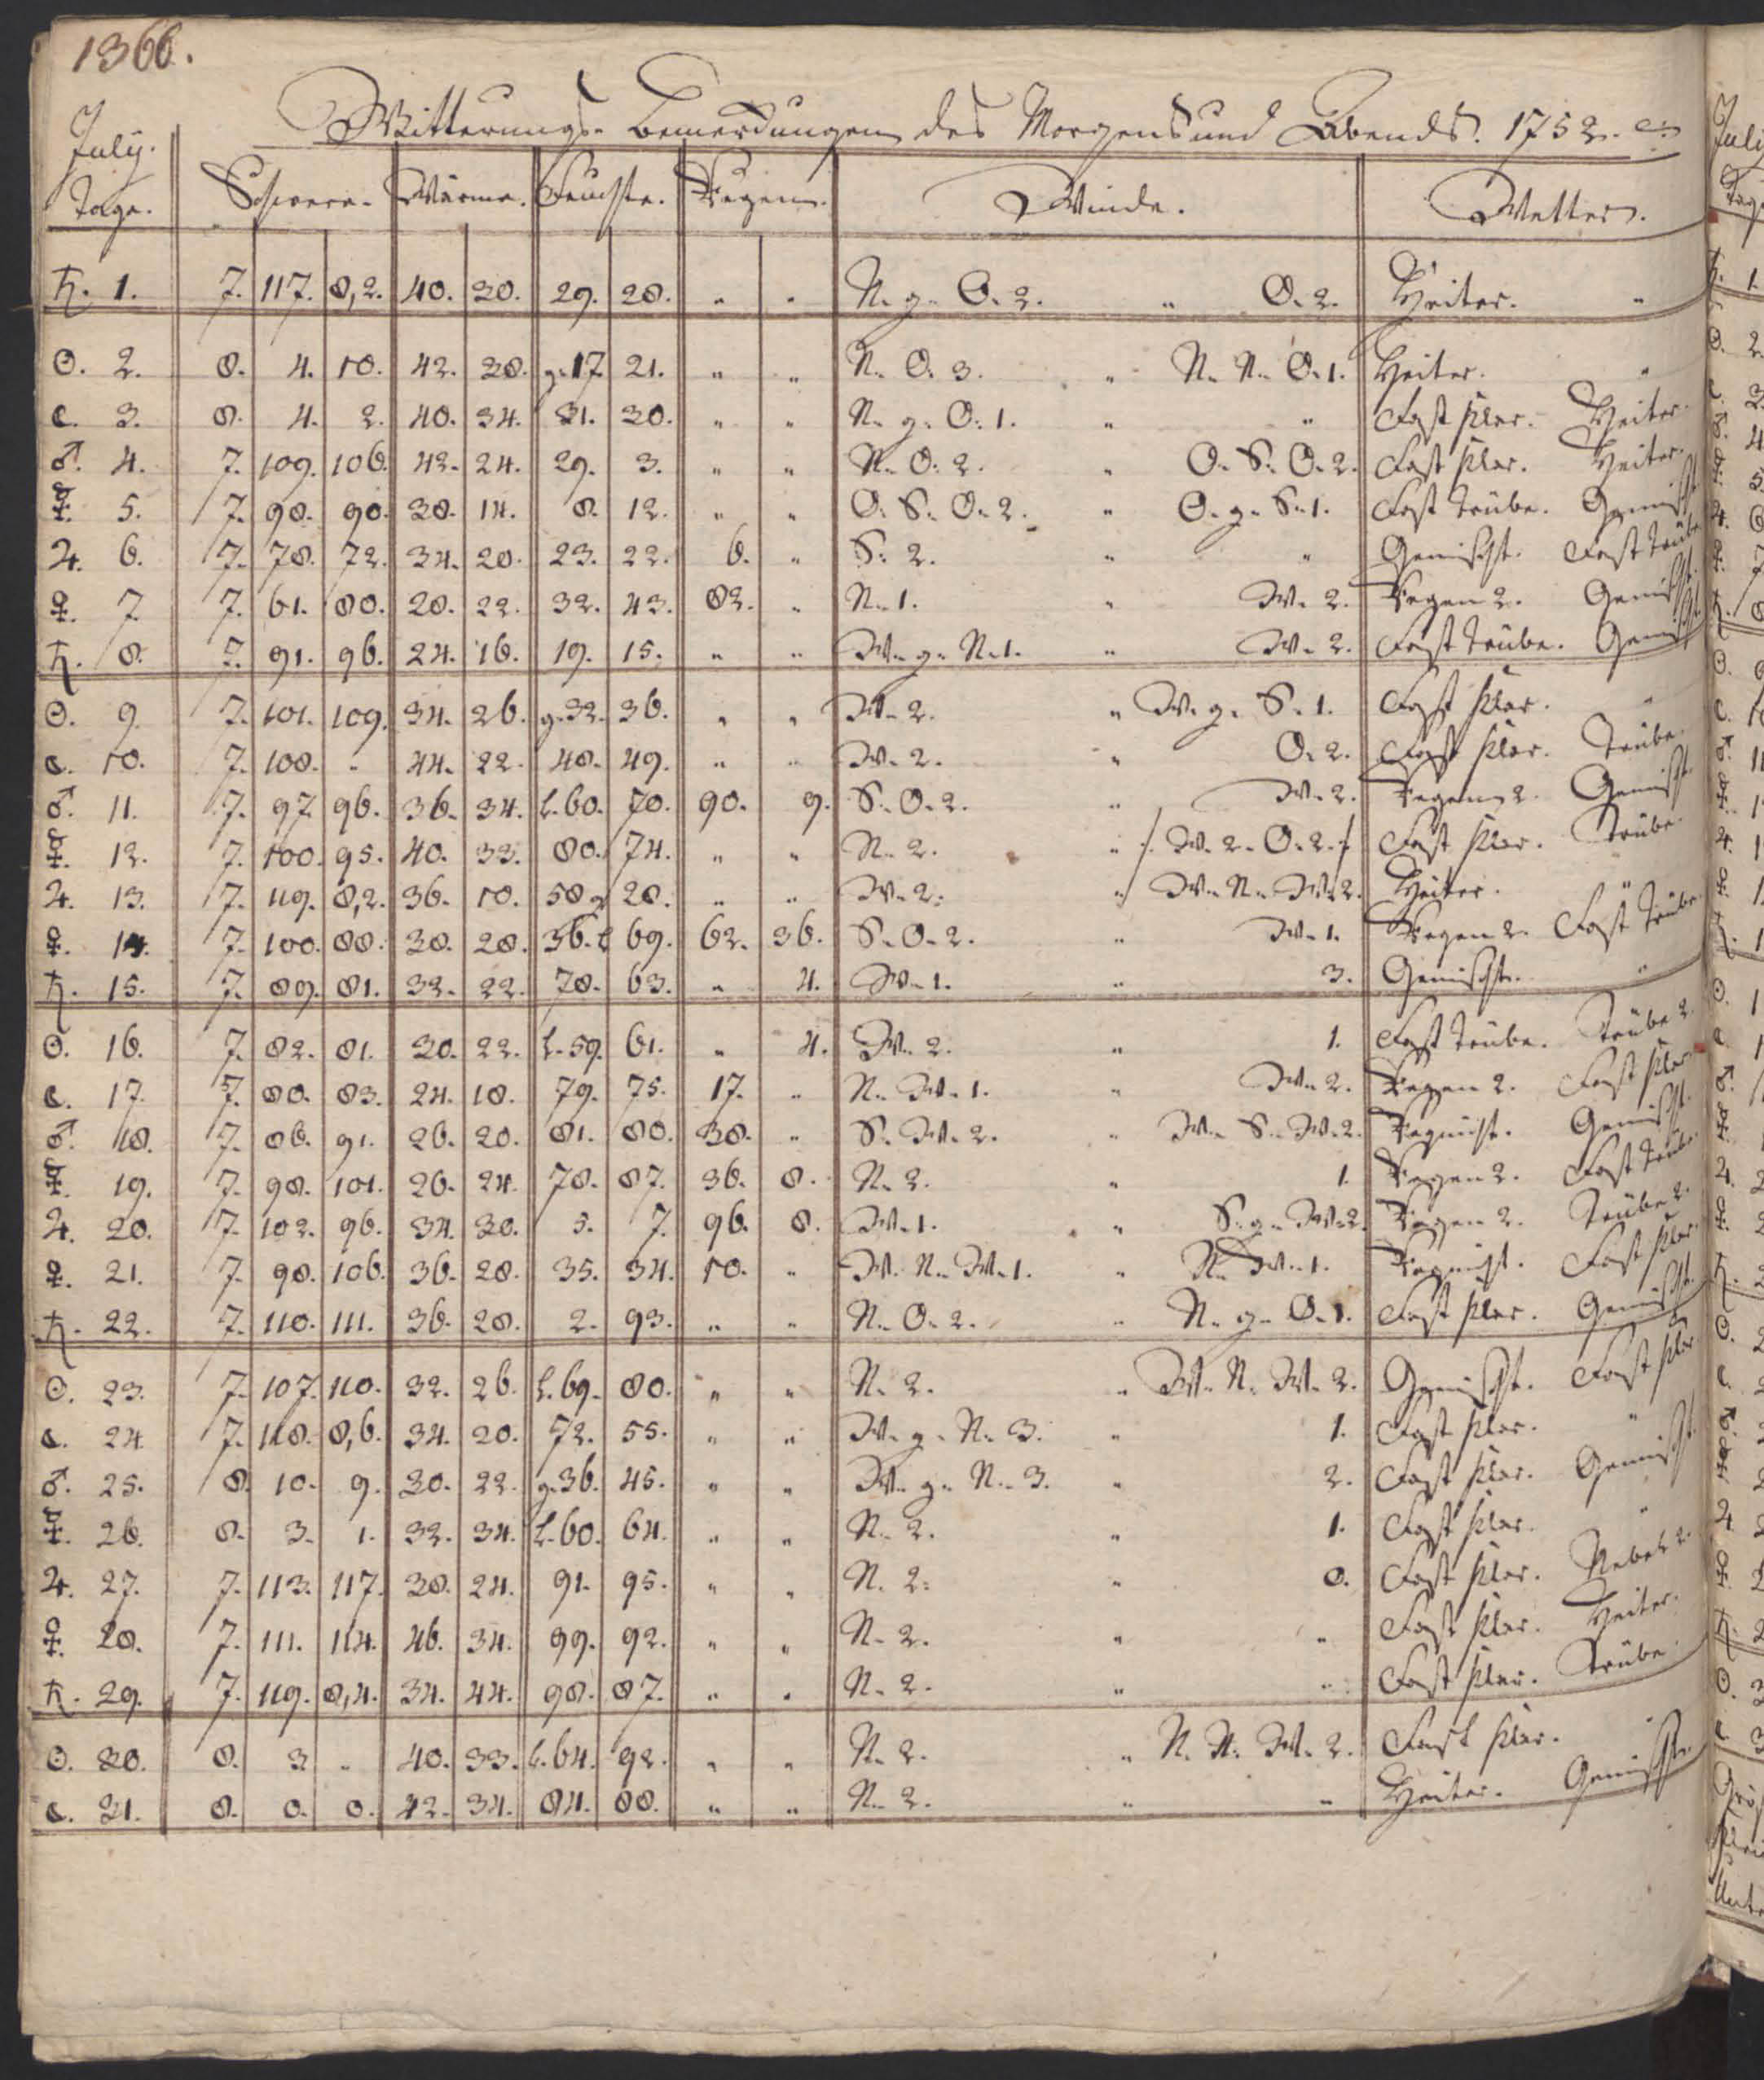 1366.
Witterungs-Bemerckungen des Morgens und Abends. 1752.
July.
Tage. Schwere. Wärme. Feuchte. Regen. Winde. Wetter.
♄. 1. 7. 117. 8,2. 40. 30. 29. 28. " " N. g. O. 2. " O. 2. Heiter. "
☉. 2. 8. 4. 10. 42. 38. g. 17. 21. " " N. O. 3. " N. N. O. 1. Heiter. "
☾. 3. 8. 4. 2. 40. 34. 31. 30. " " N. g. O. 1. " " Fast klar. Heiter.
♂. 4. 7. 109. 106. 42. 24. 29. 3. " " N. O. 2. " O. S. O. 2. Fast klar. Heiter.
☿. 5. 7. 98. 90. 38. 14. 8. 12. " " O. S. O. 2. " O. g. S. 1. Fast trübe. Gemischt.
♃. 6. 7. 78. 72. 34. 20. 23. 22. 6. " S. 2. " " Gemischt. Fast trübe
♀. 7. 7. 61. 80. 28. 22. 32. 43. 82. " N. 1. " W. 2. Regen 2. Gemischt.
♄. 8. 7. 91. 96. 24. 16. 19. 15. " " W. g. N. 1. " W. 2. Fast trübe. Gemischt.
☉. 9. 7. 101. 109. 34. 26. g. 32. 36. " " W. 2. " W. g. S. 1. Fast klar. "
☾. 10. 7. 108. " 44. 22. 48. 49. " " W. 2. " O. 2. Fast klar. Trübe.
♂. 11. 7. 97. 96. 36. 34. l. 60. 70. 90. 9. S. O. 2. " W. 2. Regen 2. Gemischt.
☿. 12. 7. 100. 95. 40. 33. 80. 74. " " N. 2. " /. W. 2. O. 2. / Fast klar. Trübe.
♃. 13. 7. 119. 8,2. 36. 10. 58. g 28. " " W. 2. " W. N. W. 2. Heiter. "
♀. 14. 7. 100. 88. 38. 28. 36. l 69. 62. 36. S. O. 2. " W. 1. Regen 2. Fast trübe.
♄. 15. 7. 89. 81. 32. 22. 78. 63. " 4. W. 1. " 3. Gemischt. "
☉. 16. 7. 82. 81. 30. 22. l. 59. 61. " 4. W. 2. " 1. Fast trübe. Trübe 2.
☾. 17. 7. 80. 83. 24. 18. 79. 75. 17. " N. W. 1. " W. 2. Regen 2. Fast klar.
♂. 18. 7. 86. 91. 26. 20. 81. 80. 38. " S. W. 2. " W. S. W. 2. Regnicht. Gemischt.
☿. 19. 7. 98. 101. 26. 24. 78. 87. 36. 8. N. 2. " 1. Regen 2. Fast trübe.
♃. 20. 7. 102. 96. 34. 30. 5. 7. 96. 8. W. 1. " S. g. W. 2. Regen 2. Trübe 2.
♀. 21. 7. 98. 106. 36. 28. 35. 34. 10. " W. N. W. 1. " N. W. 1. Regnicht. Fast klar.
♄. 22. 7. 110. 111. 36. 28. 2. 93. " " N. O. 2. " N. g. O. 1. Fast klar. Gemischt.
☉. 23. 7. 107. 110. 32. 26. l. 69. 80. " " N. 2. " W. N. W. 2. Gemischt. Fast klar
☾. 24. 7. 118. 8,6. 34. 20. 72. 55. " " W. g. N. 3. " 1. Fast klar. "
♂. 25. 8. 10. 9. 30. 22. g. 36. 45. " " W. g. N. 3. " 2. Fast klar. Gemischt.
☿. 26. 8. 3. 1. 32. 34. l. 60. 64. " " N. 2. " 1. Fast klar. "
♃. 27. 7. 113. 117. 38. 24. 91. 95. " " N. 2. " 0. Fast klar. Nebel 2.
♀. 28. 7. 111. 114. 46. 34. 99. 92. " " N. 2. " " Fast klar. Heiter.
♄. 29. 7. 119. 8,4. 34. 44. 98. 87. " " N. 2. " " Fast klar. Trübe.
☉. 30. 8. 3. " 40. 33. l. 64. 92. " " N. 2. " N. N. W. 2. Fast klar. "
☾. 31. 8. 0. 0. 42. 34. 84. 88. " " N. 2. " " Heiter. Gemischt.